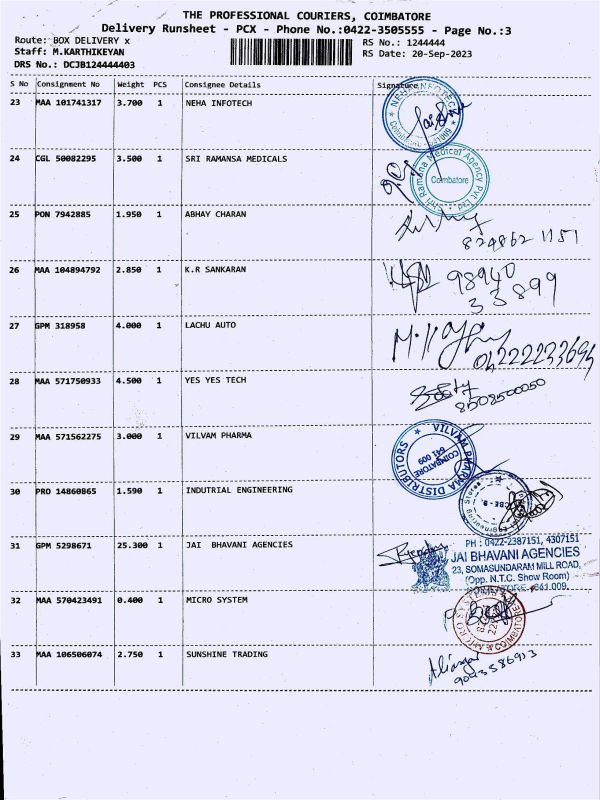 THE PROFESSIONAL COURIERS, COIMBATORE
Delivery Runsheet - PCX - Phone No.:0422-3505555 - Page No.:3
Route: BOX DELIVERY x
RS No.: 1244444
Staff: M.KARTHIKEYAN
RS Date: 20-Sep-2023
DRS No.: DCJB124444403
S No Consignment No Weight PCS Consignee Details Signature
23 MAA 101741317 3.700 1 NEHA INFOTECH
NEHA INFOTECH
24 CGL 50082295 3.500 1 SRI RAMANSA MEDICALS
Sri Ramana Medical Agency Pvt Ltd
Coimbatore
25 PON 7942885 1.950 1 ABHAY CHARAN
26 MAA 104894792 2.850 1 K.R SANKARAN
98940
33899
27 GPM 318958 4.000 1 LACHU AUTO
28 MAA 571750933 4.500 1 YES YES TECH
8508500050
29 MAA 571562275 3.000 1 VILVAM PHARMA
VILVAM PHARMA DISTRIBUTORS
COIMBATORE
641 009
30 PRO 14860865 1.590 1 INDUTRIAL ENGINEERING
31 GPM 5298671 25.300 1 JAI BHAVANI AGENCIES
PH : 0422-2387151, 4307151
JAI BHAVANI AGENCIES
23, SOMASUNDARAM MILL ROAD,
(Opp. N.T.C. Show Room)
COIMBATORE - 641 009.
32 MAA 570423491 0.400 1 MICRO SYSTEM
COIMBATORE
33 MAA 106506074 2.750 1 SUNSHINE TRADING
9043586913